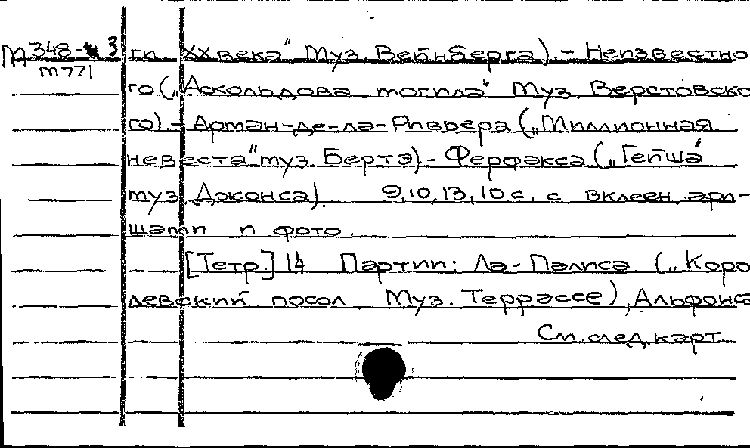 М 348-3 ги XX века" Муз. Вейнберга) - Неизвестно
м 771
го („Аскольдова могила" Муз. Верстовско
го) - Арман-де-ла-Ривьера („Миллионная
невеста" муз. Бертэ) - Ферфакса („Гейша"
муз. Джонса). 9, 10, 13, 10 с. с вклеен. афи-
шами и фото.
[Тетр.] 14 Партии: Ла-Палиса („Коро
левский посол Муз. Террассе), Альфонса
См. след. карт.